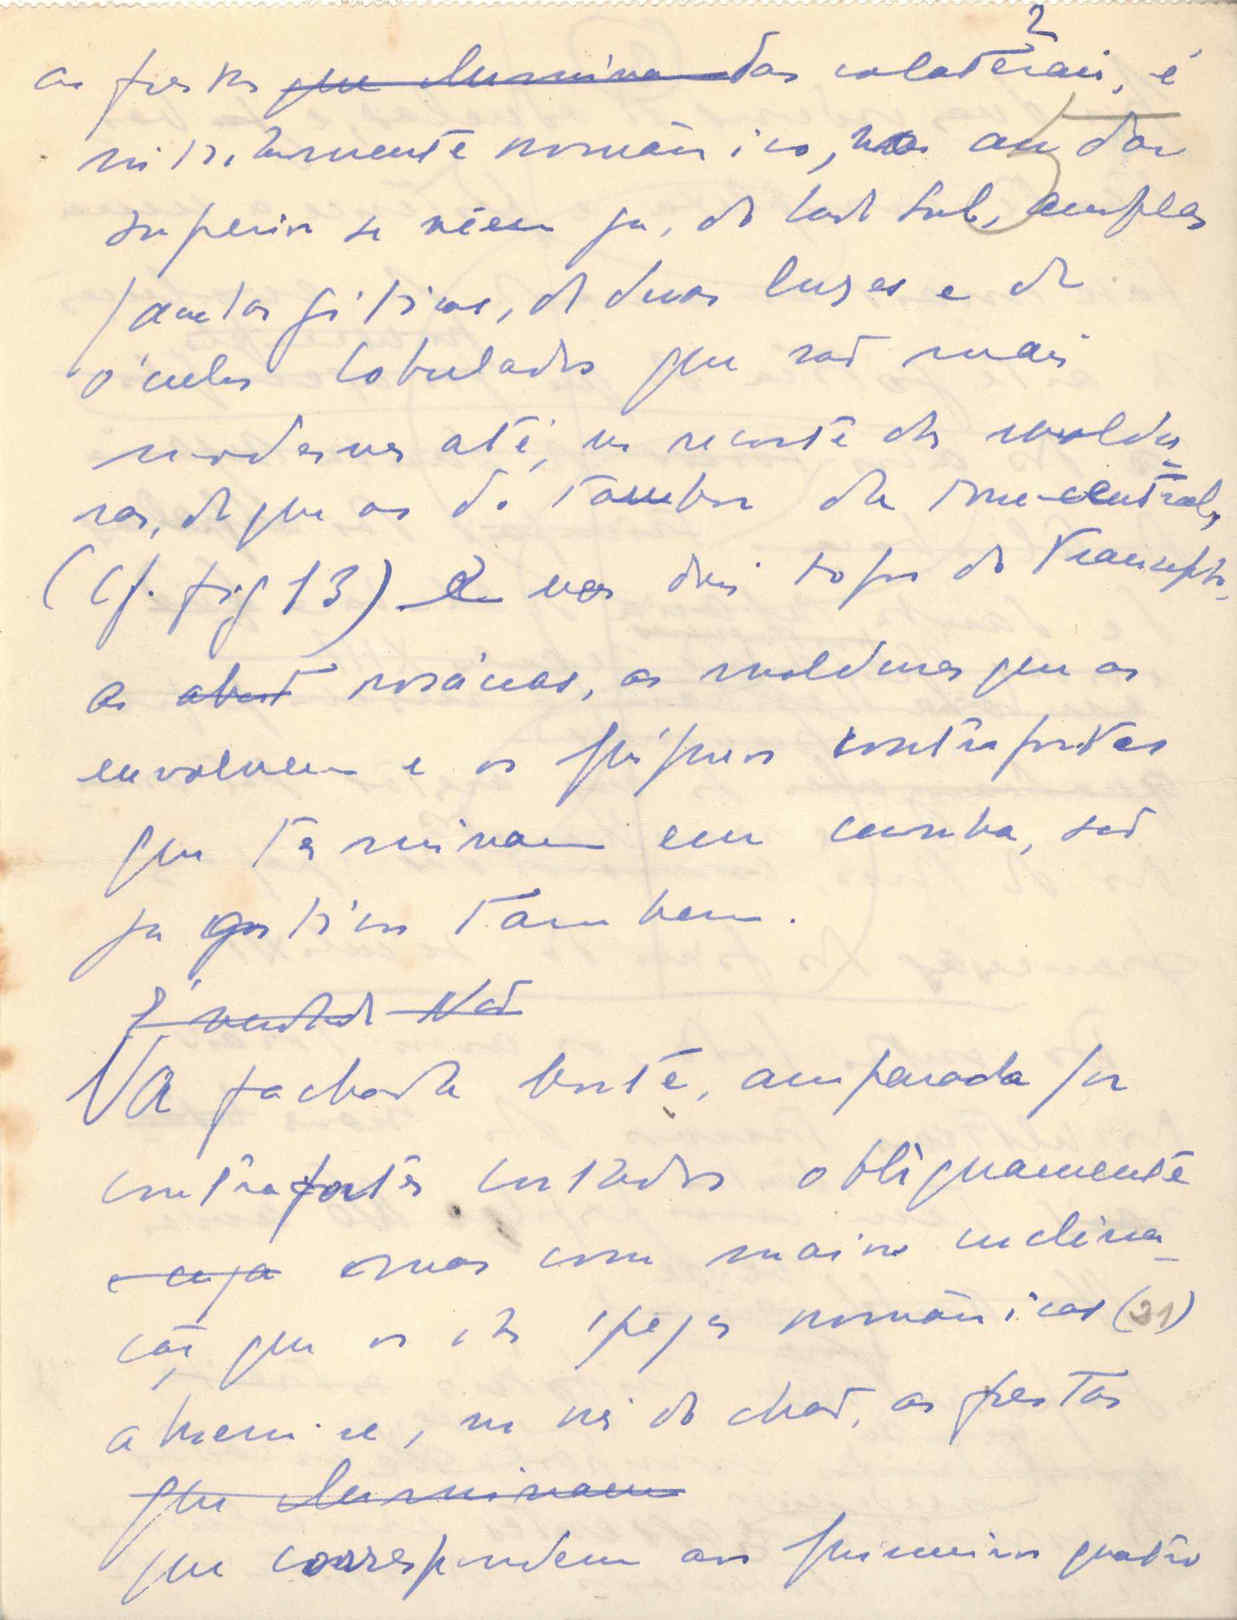 2
as frestas que iluminam das colaterais, é
nitidamente românico, nas andar
superior se vêem ja, do lado sul, amplas
janelas góticas, de duas luzes e de
óculos lobulados que são mais
modernas até, no recorte das moldu-
ras, do que as do tambor da torre central,
(Cf. fig 13) E nos dois topos do transepto,
as abert rosáceas, as molduras que as
envolvem e os próprios contrafortes
que terminam em cunha, são
ja goticos tambem.
É verdade Não
Na fachada norte, amparada por
contrafortes cortados obliquamente
e cuja mas com maior inclina-
ção que os das igrejas românicas (21)
abrem-se, no rés do chão, as frestas
que iluminam
que correspondem aos primeiros quatro